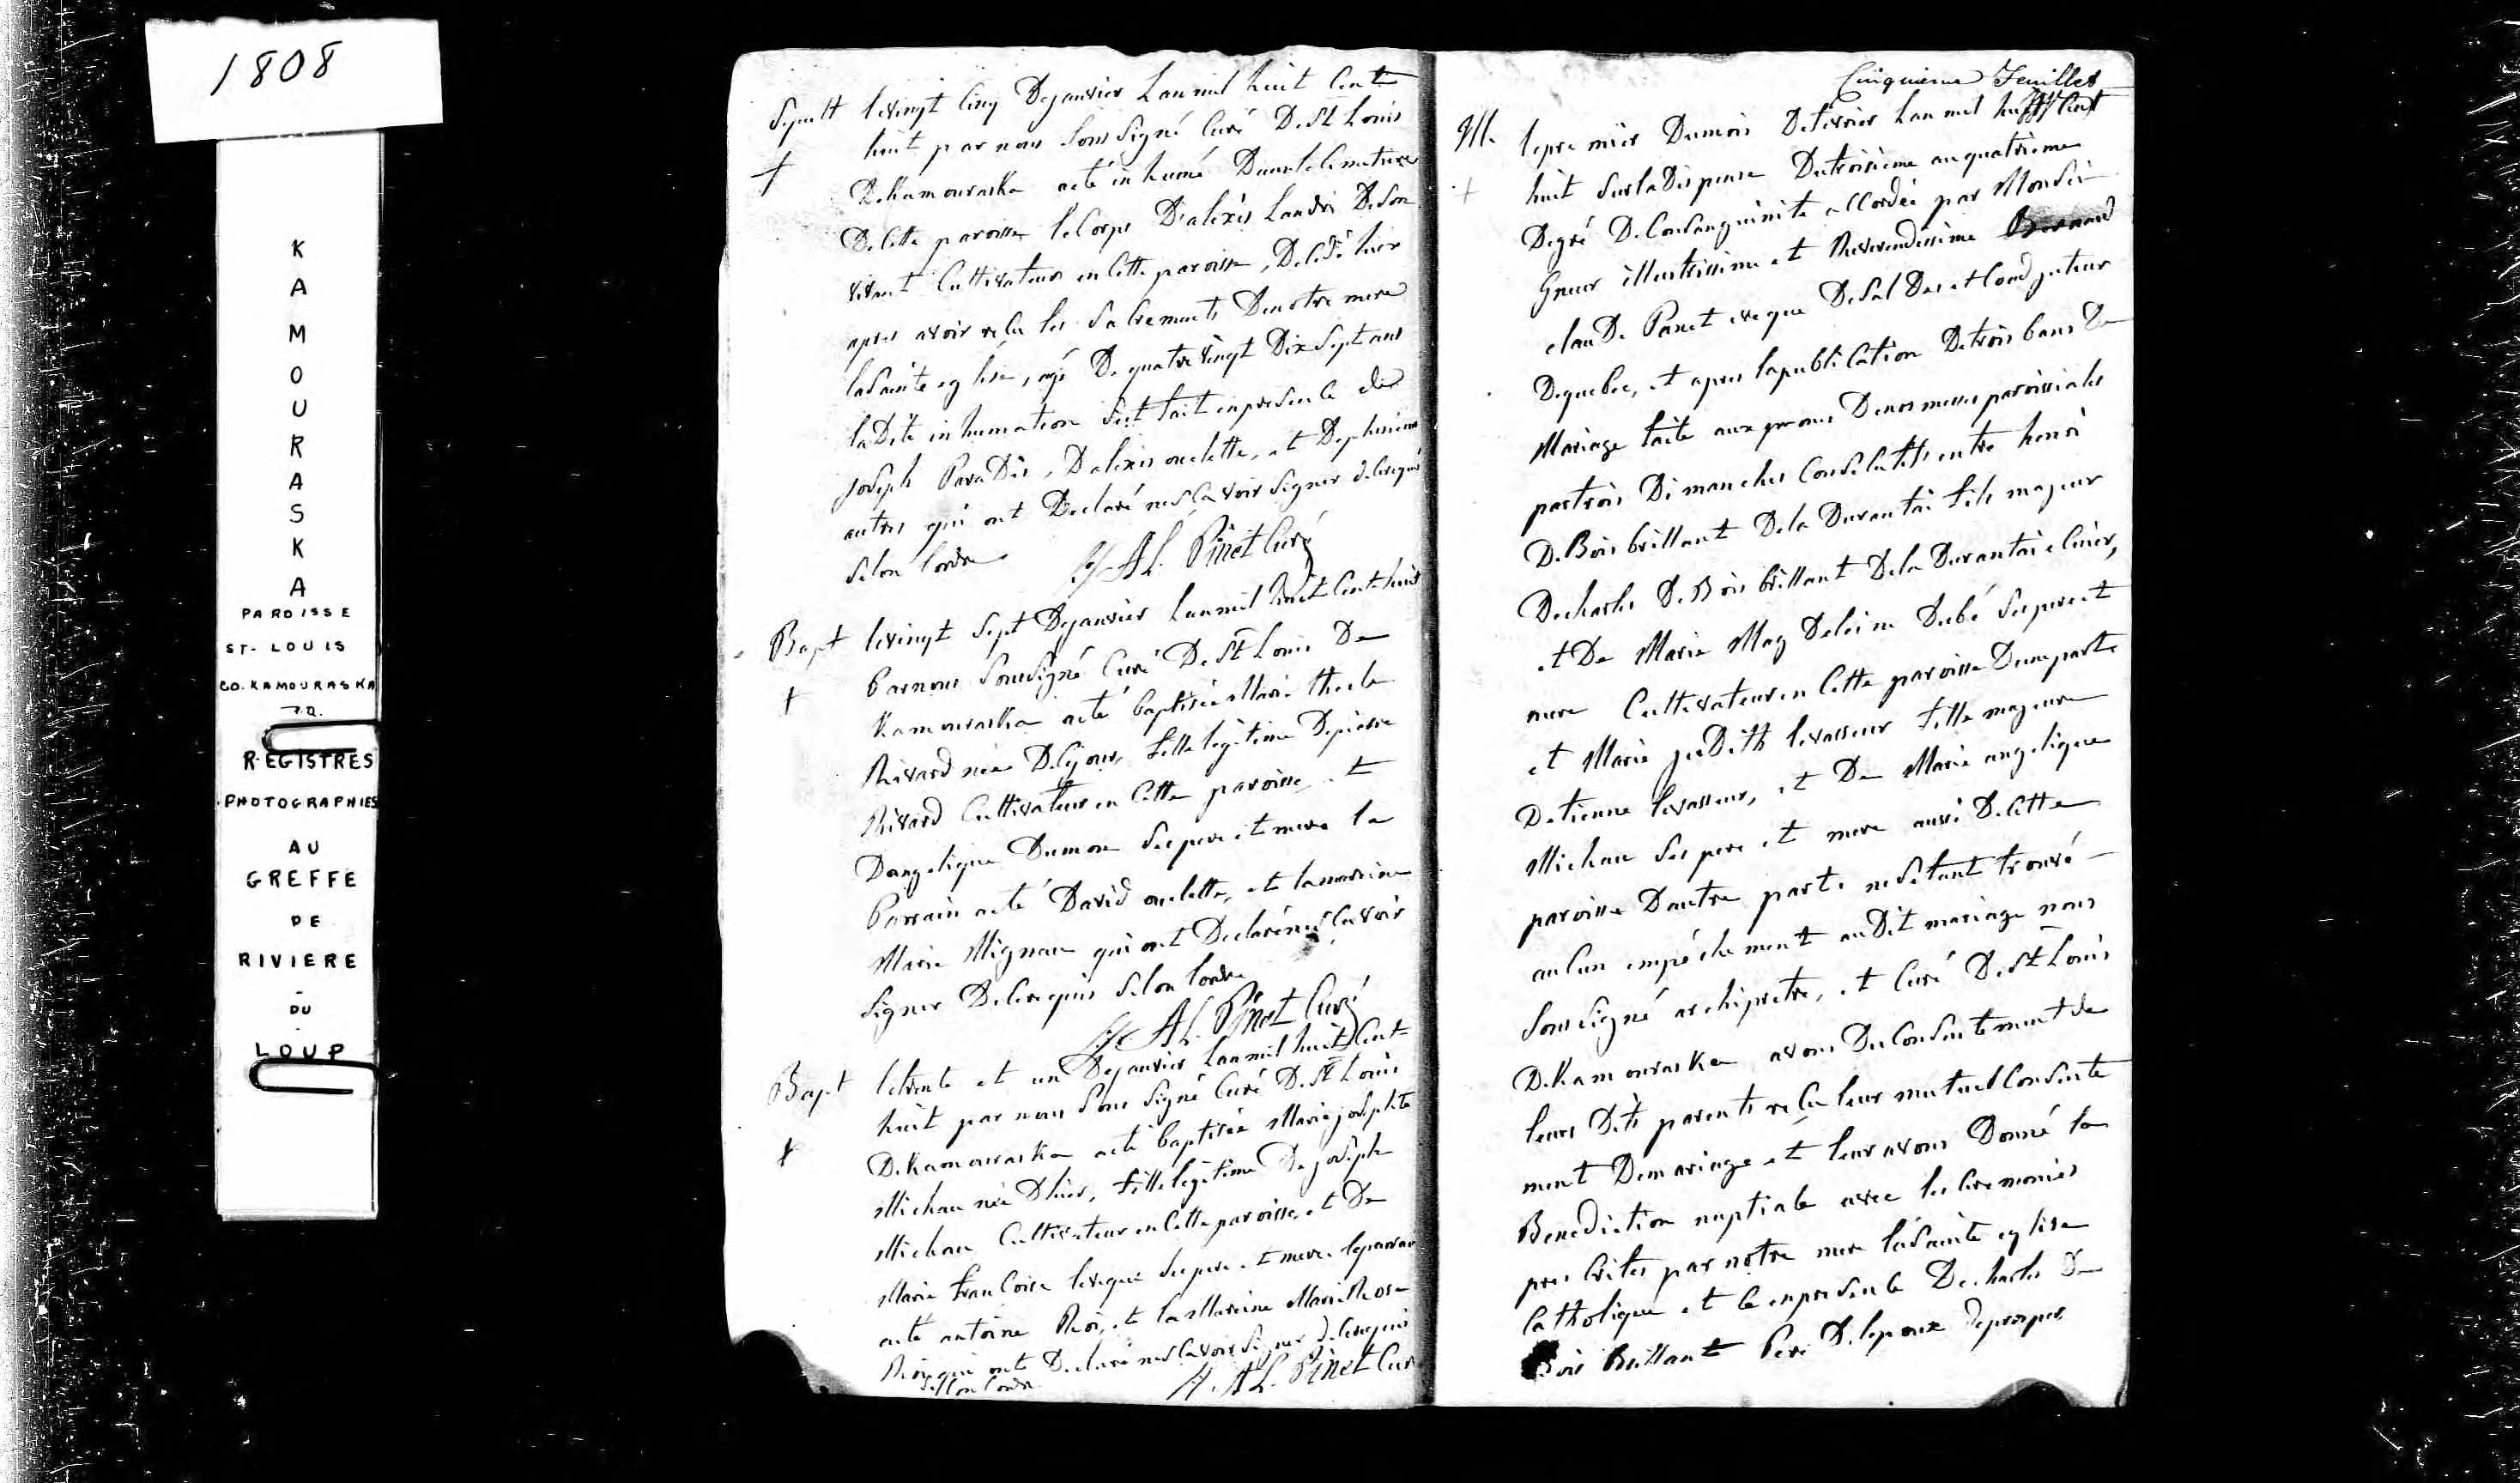 1808
K
A
M
O
U
R
A
S
K
A
PAROISSE
ST-LOUIS
CO. KAMOURASKA
P.Q.
REGISTRES
PHOTOGRAPHIES
AU
GREFFE
DE
RIVIERE
-
DU
-
LOUP
Sepult levingt Cinq Dejanvier Lanmil huit Cent
huit par nous Sous Signé Curé De St Louis
† DeKamouraska aété in humé Dans le Cimetiere
De Cette paroisse le Corps D'alexis Landri De Son
vivant Cultivateur en Cette paroisse, Decedé hier
apres avoir reçu les Sacrements De notre mere
la Sainte eglise, agé De quatre vingt Dix Sept ans
la Dite in humation S'est fait en presence de
Joseph ParaDis, D'alexis ouelette, et De plusieurs
autres qui ont Declaré ne Sçavoir Signer de Cerequis
Selon lordre J. AL. Pinet Curé
Bapt levingt Sept Dejanvier Lanmil huit Cent huit
Par nous Sous Signé Curé De St Louis De
† Kamouraska aété baptisée Marie thecle
Rivard née De Ce jour, fille legitime De pierre
Rivard Cultivateur en Cette paroisse, et
D'angelique Dumon Ses pere et mere le
Parrain aété David ouelette, et la marraine
Marie Mignau qui ont Declaré ne Sçavoir
Signer De Cerequis Selon lordre
J. AL. Pinet Curé
Bapt letrente et un Dejanvier Lanmil huit Cent
huit par nous Sous Signé Curé De St Louis
† DeKamouraska aété baptisée Marie josephte
Michau née D'hier, fille legitime De joseph
Michau Cultivateur en Cette paroisse, et De
Marie françoise leveque Ses pere et mere le parrain
aété antoine Roi, et la Marraine Marie Rose
Roi qui ont Declaré ne Sçavoir Signer de Cerequis
Selon lordre J. AL. Pinet Curé
Cinquieme Feuillet
M. le premier Dumois De fevrier Lan mil huit Cent
† huit Sur la Dispense Du troisième au quatrième
Degré De Consanguinité accordée par Monsei
gneur illustrissime et Reverendissime Bernard
claude Panet eveque De Sal Des et Coadjuteur
De quebec, et apres la publication De trois bans De
Mariage faite aux prones De nos messes paroissiales
par trois Dimanches Consecutifs entre henri
De Bois brillant De la Durantai fils majeur
De charles De Bois brillant De la Durantai
et De Marie Mag Deleine Dubé Ses pere et
mere Cultivateur en Cette paroisse D'une part
et Marie juDith levasseur fille majeure
D'etienne levasseur, et De Marie angelique
Michau Ses pere et mere aussi De Cette
paroisse D'autre part ne S'etant trouvé
auCun empéchement au Dit mariage nous
Sous Signé archipretre, et Curé De St Louis
De Kamouraska avons Du Consentement de
leurs Dits parents reçu leur mutuel Consente
ment De mariage et leur avons Donné la
Benediction nuptiale avec les Ceremonies
presCrites par notre mere la Sainte eglise
Catholique et Ce en presence De charles De
Bois Brillant Pere De lepoux De prosper